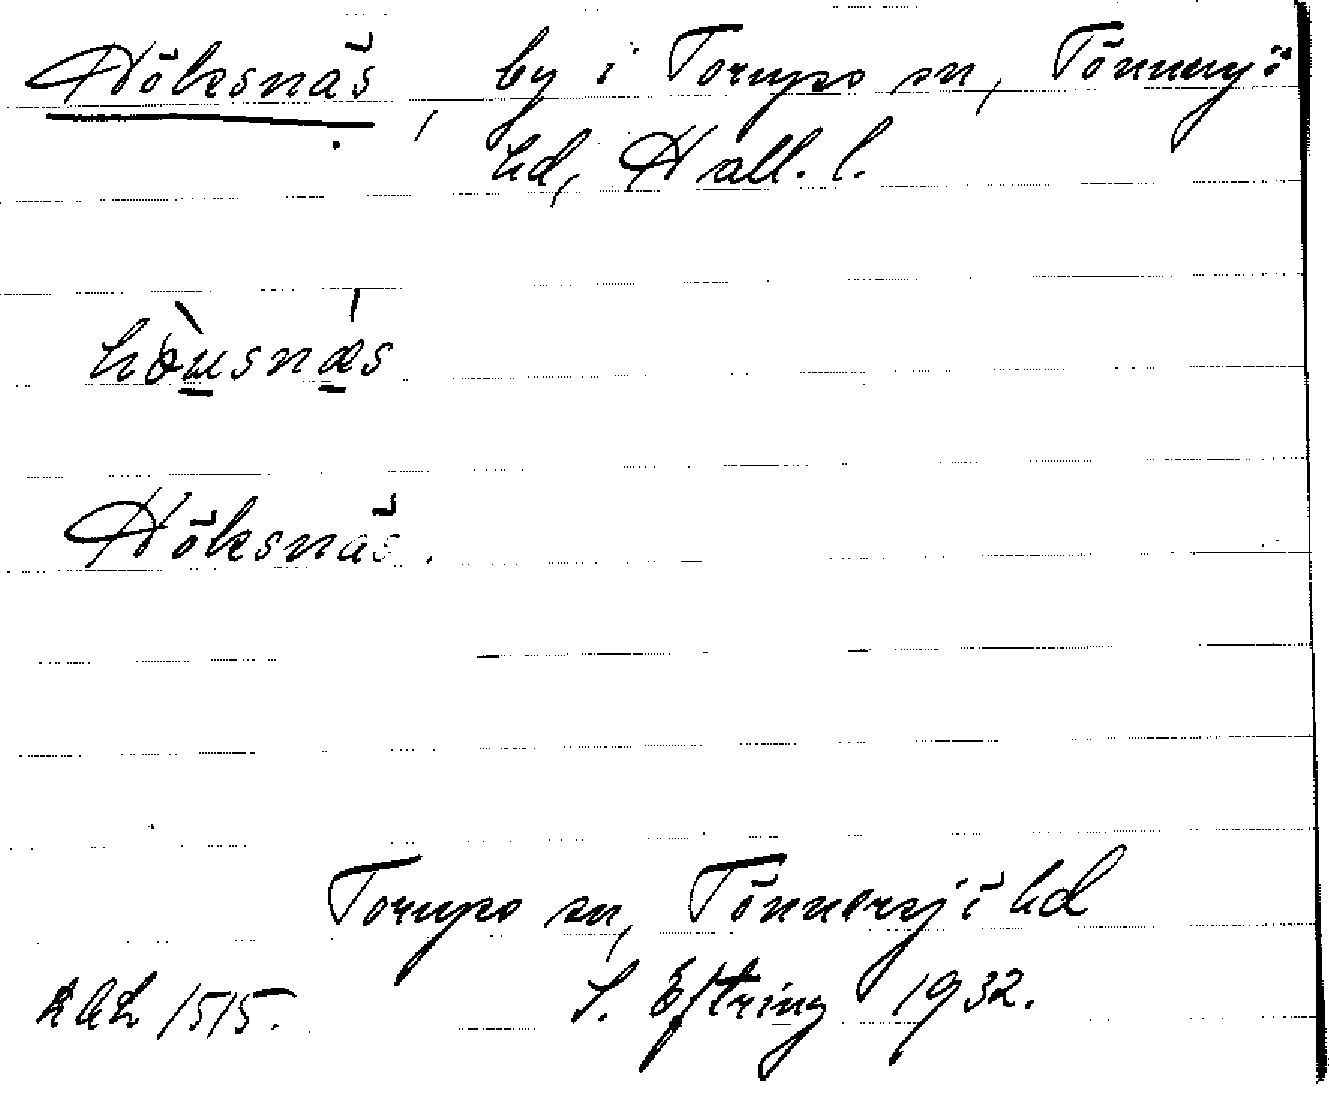 Höksnäs, by i Torups sn, Tönnersjö
hd, Hall. l.
høusnæs
Höksnäs.
Torups sn, Tönnersjö hd
1515. S. Eftring 1932.